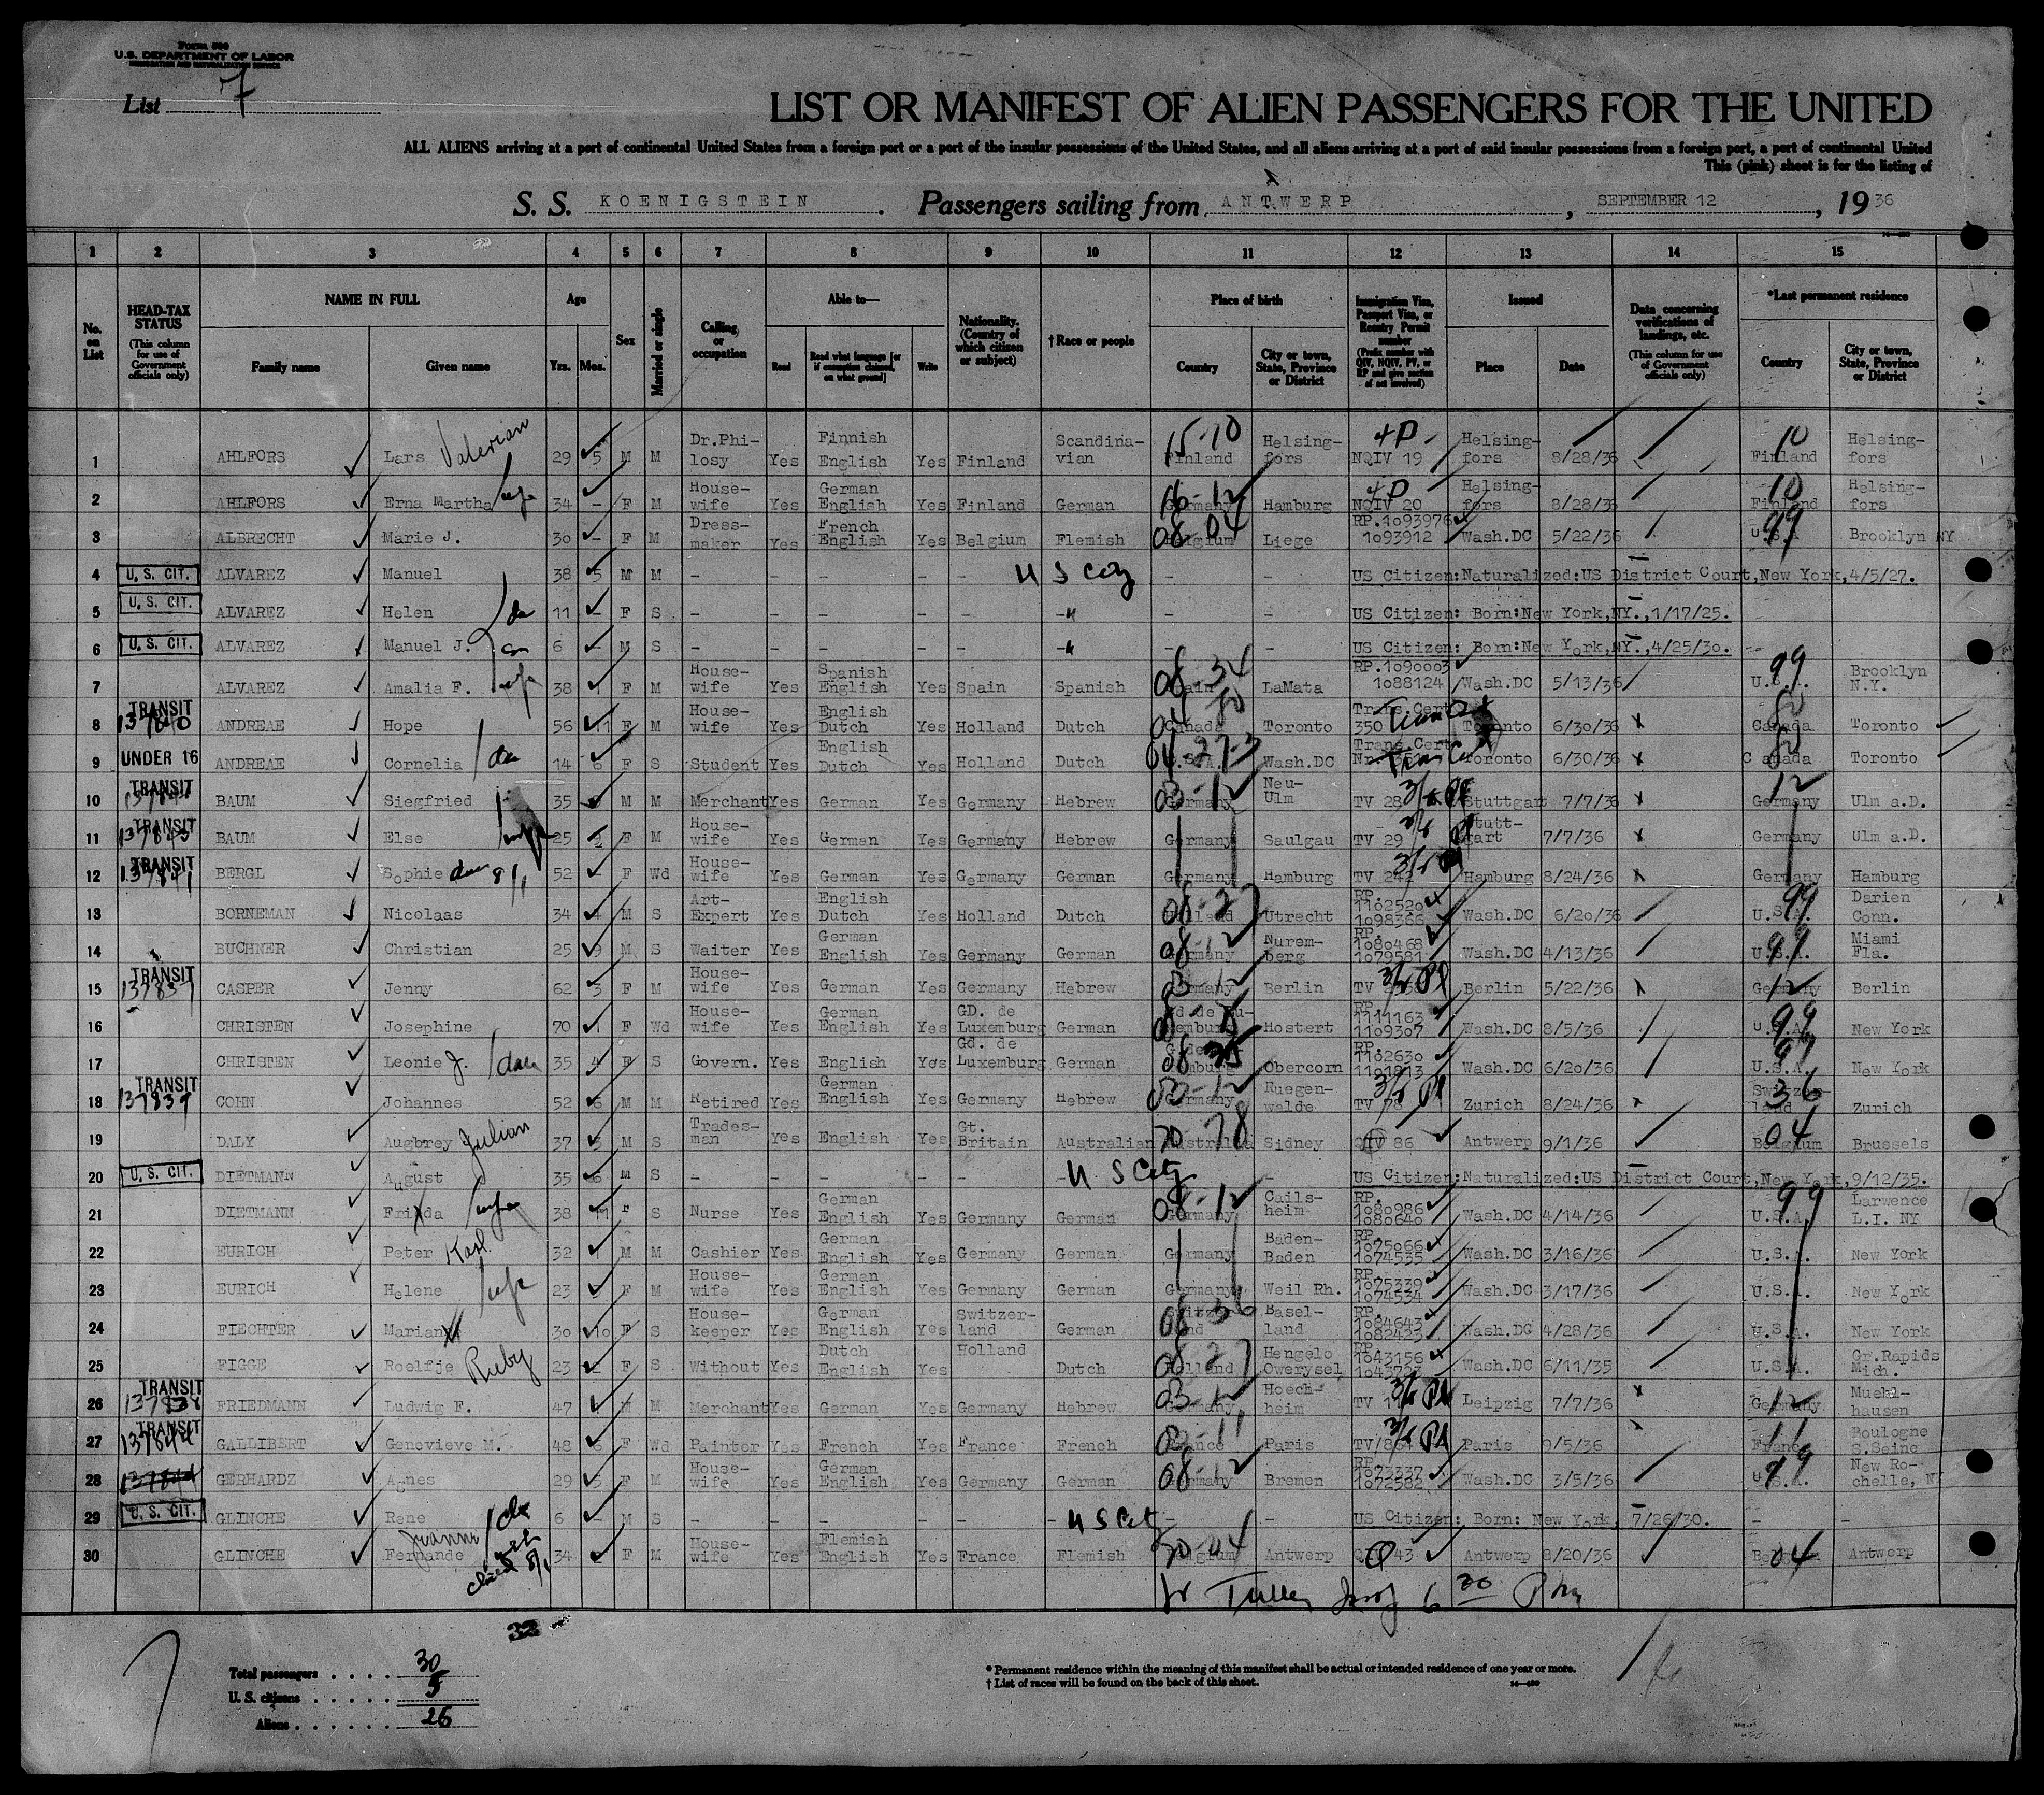 Form 500
U.S. DEPARTMENT OF LABOR
IMMIGRATION AND NATURALIZATION SERVICE
List 7
LIST OR MANIFEST OF ALIEN PASSENGERS FOR THE UNITED
ALL ALIENS arriving at a port of continental United States from a foreign port or a port of the insular possessions of the United States, and all aliens arriving at a port of said insular possessions from a foreign port, a port of continental United
This (pink) sheet is for the listing of
S. S. KOENIGSTEIN. Passengers sailing from ANTWERP, SEPTEMBER 12, 1936
1 2 3 4 5 6 7 8 9 10 11 12 13 14 15
No. on List
HEAD-TAX STATUS (This column for use of Government officials only)
NAME IN FULL Family name Given name
Age Yrs. Mos.
Sex
Married or single
Calling or occupation
Able to— Read Read what language [or if exemption claimed, on what ground] Write
Nationality. (Country of which citizen or subject)
†Race or people
Place of birth Country City or town, State, Province or District
Immigration Visa, Passport Visa, or Reentry Permit number (Prefix number with QIV, NQIV, PV, or RP and give section of act involved)
Issued Place Date
Data concerning verifications of landings, etc. (This column for use of Government officials only)
*Last permanent residence Country City or town, State, Province or District
1 AHLFORS Lars Valerian 29 5 M M Dr.Philosy Yes Finnish English Yes Finland Scandinavian 15-10 Finland Helsingfors 4D NQIV 19 Helsingfors 8/28/36 10 Finland Helsingfors
2 AHLFORS Erna Martha wife 34 - F M Housewife Yes German English Yes Finland German 16-12 Germany Hamburg 4D NQIV 20 Helsingfors 8/28/36 10 Finland Helsingfors
3 ALBRECHT Marie J. 30 - F M Dressmaker Yes French English Yes Belgium Flemish 08-04 Belgium Liege RP.1093976 1093912 Wash.DC 5/22/36 99 U.S.A. Brooklyn NY
4 U.S. CIT. ALVAREZ Manuel 38 5 M M - - - - - U S City - - US Citizen:Naturalized:US District Court,New York,4/5/27.
5 U.S. CIT. ALVAREZ Helen da 11 - F S - - - - - " - - US Citizen: Born:New York,NY.,1/17/25.
6 U.S. CIT. ALVAREZ Manuel J. son 6 - M S - - - - - " - - US Citizen: Born:New York,NY.,4/25/30.
7 ALVAREZ Amalia F. wife 38 1 F M Housewife Yes Spanish English Yes Spain Spanish 08-34 Spain LaMata RP.1090003 1088124 Wash.DC 5/13/36 99 U.S.A. Brooklyn N.Y.
8 TRANSIT 137840 ANDREAE Hope 56 11 F M Housewife Yes English Dutch Yes Holland Dutch Canada Toronto Trans.Cert 350 Toronto 6/30/36 80 Canada Toronto
9 UNDER 16 ANDREAE Cornelia da 14 6 F S Student Yes English Dutch Yes Holland Dutch U.S.A. Wash.DC Trans.Cert Toronto 6/30/36 80 Canada Toronto
10 TRANSIT BAUM Siegfried 35 M M Merchant Yes German Yes Germany Hebrew 03-12 Germany Neu-Ulm TV 28 Stuttgart 7/7/36 12 Germany Ulm a.D.
11 TRANSIT 137843 BAUM Else wife 25 F M Housewife Yes German Yes Germany Hebrew Germany Saulgau TV 29 Stuttgart 7/7/36 Germany Ulm a.D.
12 TRANSIT 137841 BERGL Sophie 52 F Wd Housewife Yes German Yes Germany German Germany Hamburg TV Hamburg 8/24/36 Germany Hamburg
13 BORNEMAN Nicolaas 34 4 M S Art-Expert Yes English Dutch Yes Holland Dutch 08-27 Holland Utrecht RP 1102520 1098366 Wash.DC 6/20/36 99 U.S.A. Darien Conn.
14 BUCHNER Christian 25 9 M S Waiter Yes German English Yes Germany German 08-12 Germany Nuremberg RP. 1080468 1079581 Wash.DC 4/13/36 99 U.S.A. Miami Fla.
15 TRANSIT 137837 CASPER Jenny 62 3 F M Housewife Yes German Yes Germany Hebrew 03-12 Germany Berlin TV Berlin 5/22/36 12 Germany Berlin
16 CHRISTEN Josephine 70 1 F Wd Housewife Yes German English Yes GD. de Luxemburg German Hostert RP. 1111163 1109307 Wash.DC 8/5/36 99 U.S.A. New York
17 CHRISTEN Leonie J. dau 35 4 F S Govern. Yes English Yes Gd. de Luxemburg German Obercorn RP. 1102630 1101813 Wash.DC 6/20/36 99 U.S.A. New York
18 TRANSIT 137839 COHN Johannes 52 6 M M Retired Yes German English Yes Germany Hebrew 03-12 Germany Ruegenwalde TV 78 Zurich 8/24/36 36 Switzerland Zurich
19 DALY Augbrey Julian 37 5 M S Tradesman Yes English Yes Gt. Britain Australian 70-78 Australia Sidney QIV 86 Antwerp 9/1/36 04 Belgium Brussels
20 U.S. CIT. DIETMANN August 35 6 M S - - - - - U S City - - US Citizen:Naturalized:US District Court,New York,9/12/35.
21 DIETMANN Frieda wife 38 11 F S Nurse Yes German English Yes Germany German 08-12 Germany Cailsheim RP. 1080986 1080640 Wash.DC 4/14/36 99 U.S.A. Larwence L.I. NY
22 EURICH Peter Karl 32 M M Cashier Yes German English Yes Germany German Germany Baden-Baden RP. 1075066 1074535 Wash.DC 3/16/36 U.S.A. New York
23 EURICH Helene wife 23 5 F M Housewife Yes German English Yes Germany German Germany Weil Rh. RP. 1075339 1074534 Wash.DC 3/17/36 U.S.A. New York
24 FIECHTER Marianne 30 10 F S Housekeeper Yes German English Yes Switzerland German 08-36 Switzerland Baselland RP. 1084643 1082423 Wash.DC 4/28/36 U.S.A. New York
25 FIGGE Roelfje Ruby 23 F S Without Yes Dutch English Yes Holland Dutch 08-27 Holland Hengelo Owerysel RP. 1043156 Wash.DC 6/11/35 U.S.A. Gr.Rapids Mich.
26 TRANSIT 137838 FRIEDMANN Ludwig F. 47 M M Merchant Yes German Yes Germany Hebrew 03-12 Germany Hoechheim TV Leipzig 7/7/36 12 Germany Muehlhausen
27 TRANSIT 137844 GALLIBERT Genevieve M. 48 6 F Wd Painter Yes French Yes France French 03-11 France Paris TV/864 Paris 9/5/36 11 France Boulogne S.Seine
28 137844 GERHARDZ Agnes 29 5 F M Housewife Yes German English Yes Germany German 08-12 Germany Bremen RP 1073337 1072582 Wash.DC 3/5/36 99 U.S.A. New Rochelle, NY
29 U.S. CIT. GLINCHE Rene 6 - M S - - - - - U S City - - US Citizen: Born: New York, 7/26/30. - -
30 GLINCHE Jeanne Fernande 34 F M Housewife Yes Flemish English Yes France Flemish 70-04 Belgium Antwerp 43 Antwerp 8/20/36 04 Belgium Antwerp
32
Total passengers . . . . 30
U. S. citizens . . . . . 5
Aliens . . . . . . 25
* Permanent residence within the meaning of this manifest shall be actual or intended residence of one year or more.
† List of races will be found on the back of this sheet.